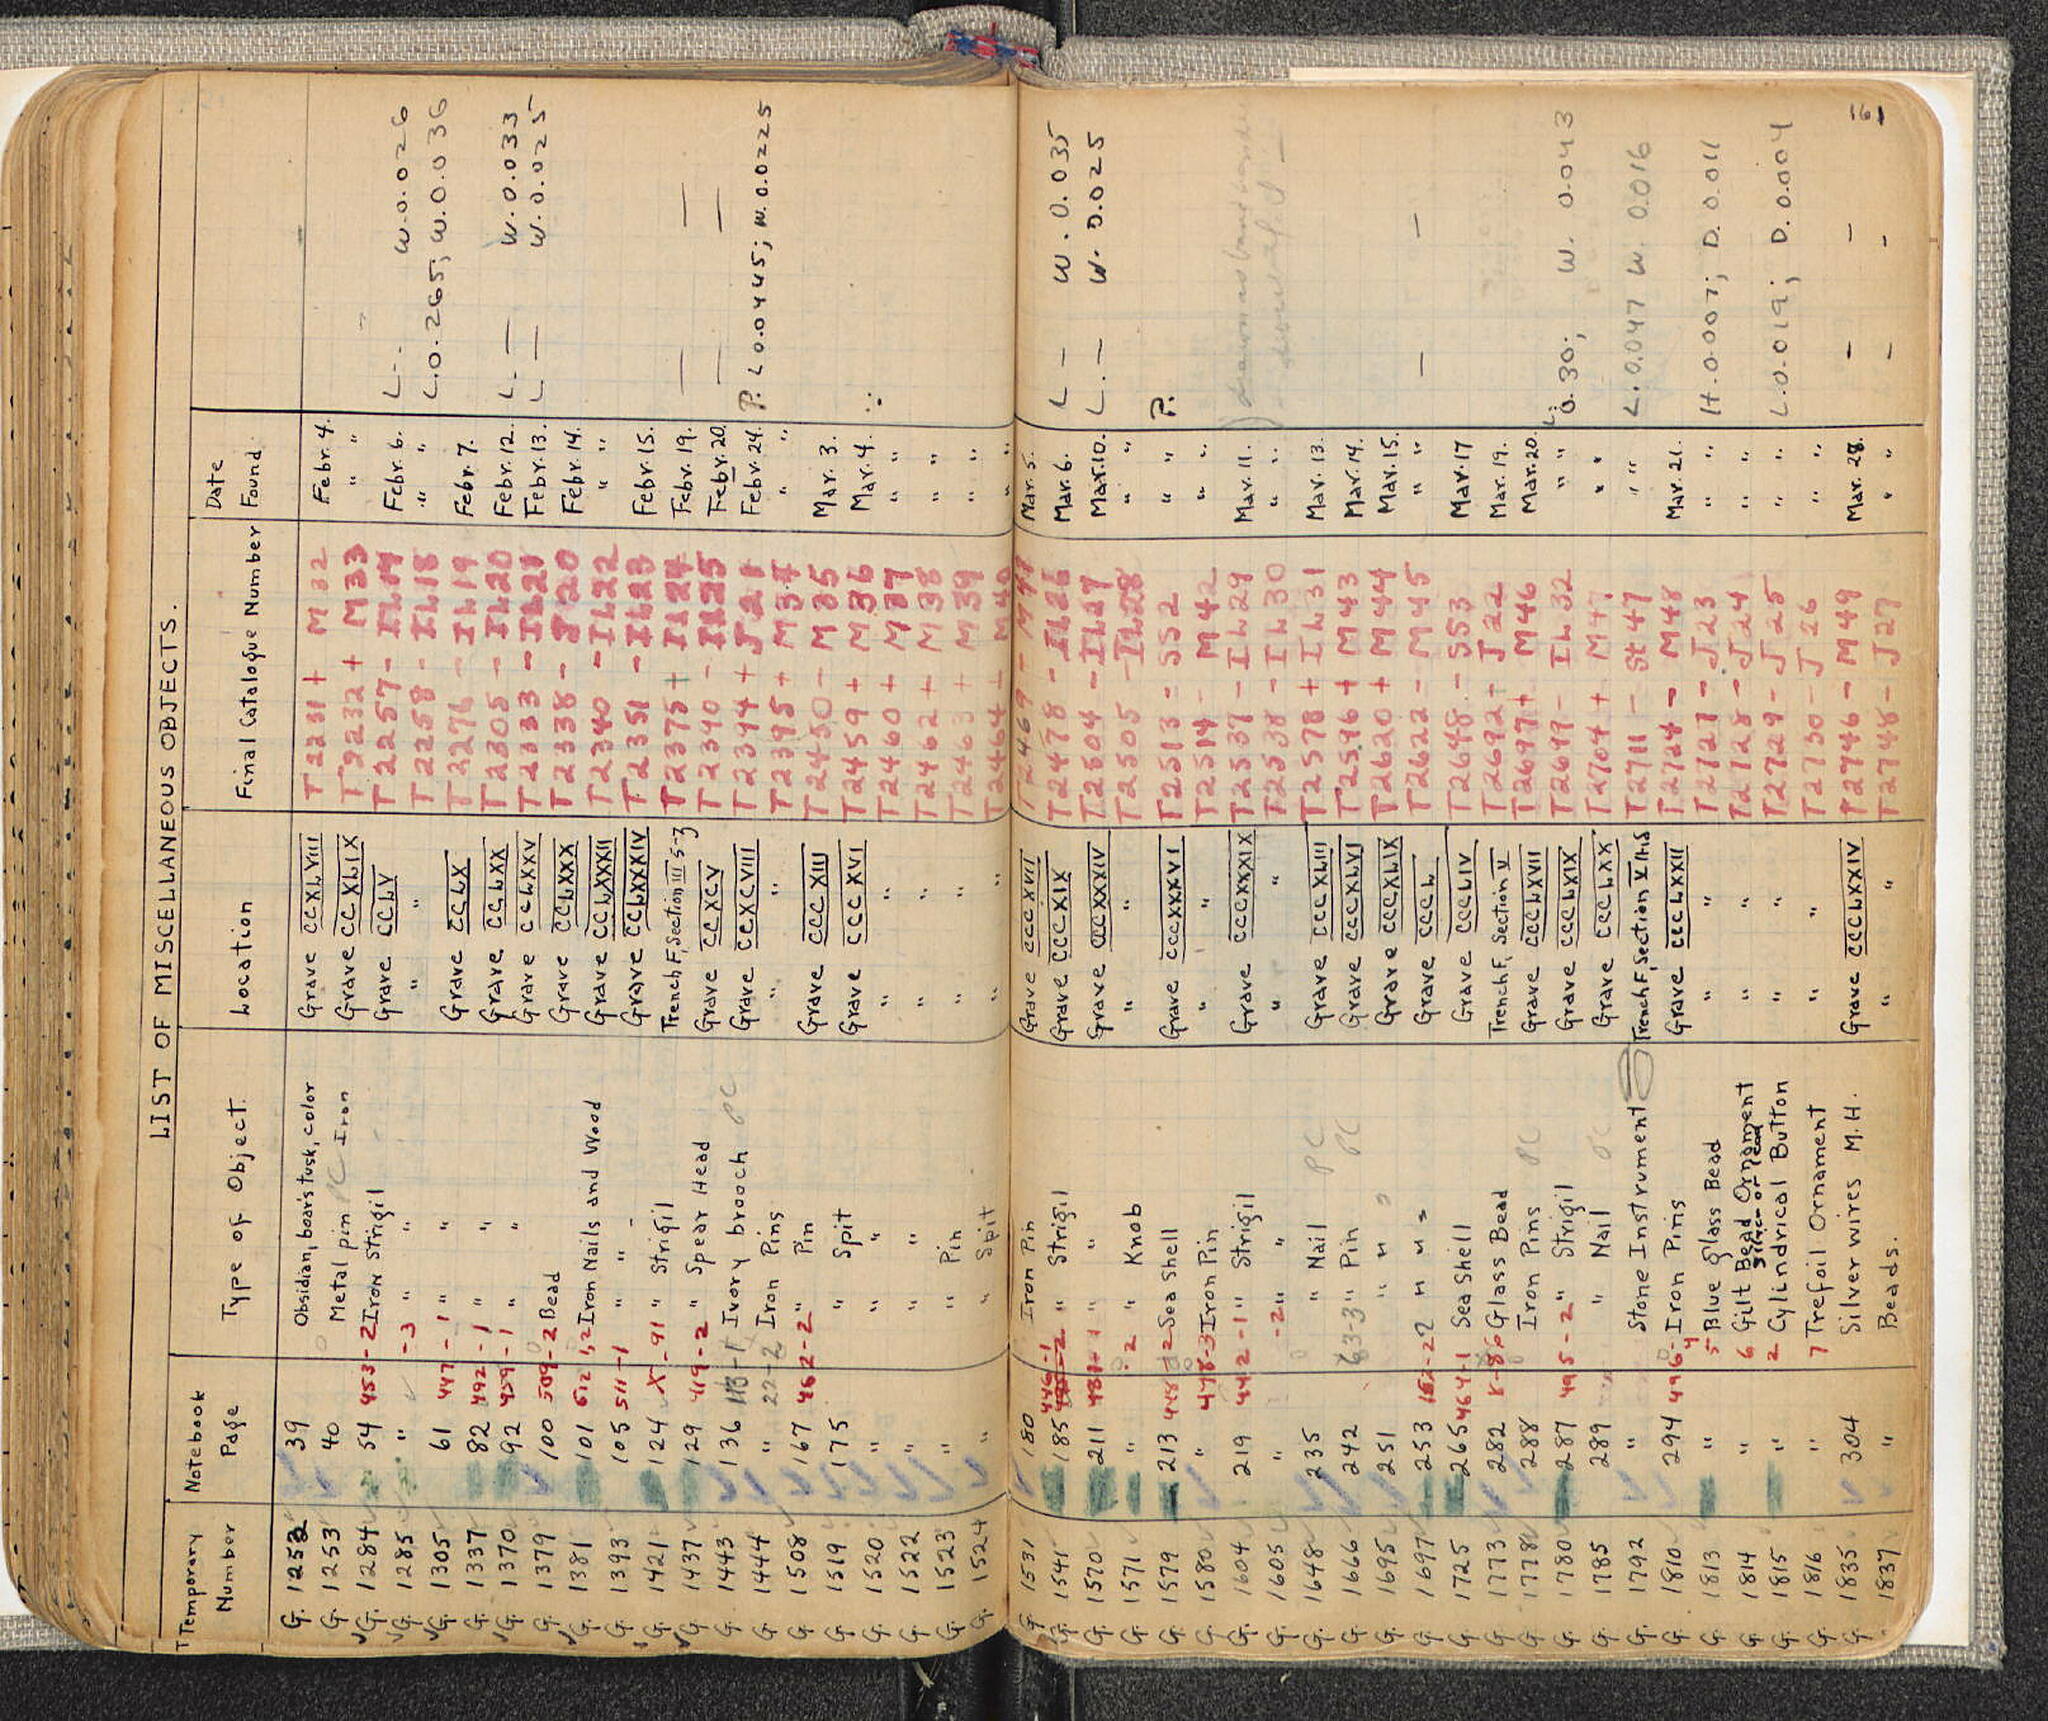 LIST OF MISCELLANEOUS OBJECTS.
Temporary Number Notebook Page Type of Object. Location Final Catalogue Number Date Found
G. 1252 39 Obsidian, boar's tusk, color Grave CCXLVIII T2231+ M32 Febr. 4.
G. 1253 40 Metal pin PC Iron Grave CCXLIX T2232+ M33 " "
G. 1284 54 453-2 Iron Strigil Grave CCLV T2257- IL17 Febr. 6. L-- W.0.026
G. 1285 " -3 " " " T2258- IL18 " " L.0.265; W.0.036
G. 1305 61 447-1 " " Grave CCLX T2276- IL19 Febr. 7.
G. 1337 82 492-1 " " Grave CCLXX T2305- IL20 Febr. 12. L-- W.0.033
G. 1370 92 459-1 " " Grave CCLXXV T2333- IL21 Febr. 13. L-- W.0.025
G. 1379 100 509-2 Bead Grave CCLXXX T2338- J20 Febr. 14.
G. 1381 101 512-1,2 Iron Nails and Wood Grave CCLXXXII T2340- IL22 " "
G. 1393 105 511-1 " " - Grave CCLXXXIV T2351- IL23 Febr. 15.
G. 1421 124 X-91 " Strigil Trench F, Section III 5-3 T2375+ IL24 Febr. 19. — —
G. 1437 129 419-2 " Spear Head Grave CCXCV T2390- IL25 Febr. 20. — —
G. 1443 136 Ivory brooch PC Grave CCXCVIII T2394+ J21 Febr. 24. P. L 0.0445; W. 0.0225
G. 1444 " 22-2 Iron Pins " " T2395+ M34 " "
G. 1508 167 462-2 " Pin Grave CCCXIII T2450- M35 Mar. 3.
G. 1519 175 " Spit Grave CCCXVI T2459+ M36 Mar. 4.
G. 1520 " " " " " T2460+ M37 " "
G. 1522 " " " " " T2462+ M38 " "
G. 1523 " " Pin " " T2463+ M39 " "
G. 1524 " " Spit " " T2464+ M40 " "
G. 1531 180 Iron Pin Grave CCCXVII T2469- Mar. 5.
G. 1541 185 446-1 " Strigil Grave CCCXIX T2478- IL26 Mar. 6. L - W. 0.035
G. 1570 211 481-1 " " Grave CCCXXXIV T2504- IL27 Mar. 10. L.- W. 0.025
G. 1571 " -2 " Knob " " T2505- IL28 " "
G. 1579 213 448-2 Sea Shell Grave CCCXXXVI T2513- SS2 " " P.
G. 1580 " 448-3 Iron Pin " " T2514- M42 " "
G. 1604 219 442-1 " Strigil Grave CCCXXXIX T2537- IL29 Mar. 11.
G. 1605 " -2 " " " " T2538- IL30 " "
G. 1648 235 " Nail PC Grave CCCXLIII T2578+ IL31 Mar. 13.
G. 1666 242 63-3 " Pin PC Grave CCCXLVI T2596+ M43 Mar. 14.
G. 1695 251 " " Grave CCCXLIX T2620+ M44 Mar. 15.
G. 1697 253 " " Grave CCCL T2622- M45 " " — —
G. 1725 265 464-1 Sea Shell Grave CCCLIV T2648- SS3 Mar. 17
G. 1773 282 Glass Bead Trench F, Section V T2692+ J22 Mar. 19.
G. 1778 288 Iron Pins PC Grave CCCLXVII T2697+ M46 Mar. 20.
G. 1780 287 495-2 " Strigil Grave CCCLXIX T2699- IL32 " " L: 0.30; W. 0.043
G. 1785 289 " Nail PC Grave CCCLXX T2704+ M47 " "
G. 1792 " Stone Instrument Trench F, Section T2711- St47 " " L.0.047 W. 0.016
G. 1810 294 496-4 Iron Pins Grave CCCLXXII T2724- M48 Mar. 21.
G. 1813 " 5- Blue Glass Bead " " T2727- J23 " " H.0.007; D. 0.011
G. 1814 " 6 Gilt Bead Ornament " " T2728- J24 " "
G. 1815 " 2 Cylindrical Button " " T2729- J25 " " L.0.019; D. 0.004
G. 1816 " 7 Trefoil Ornament " " T2730- J26 " "
G. 1835 304 Silver wires M.H. Grave CCCLXXIV T2746- M49 Mar. 28. - -
1837 " Beads. " " T2748- J27 " " - -
161